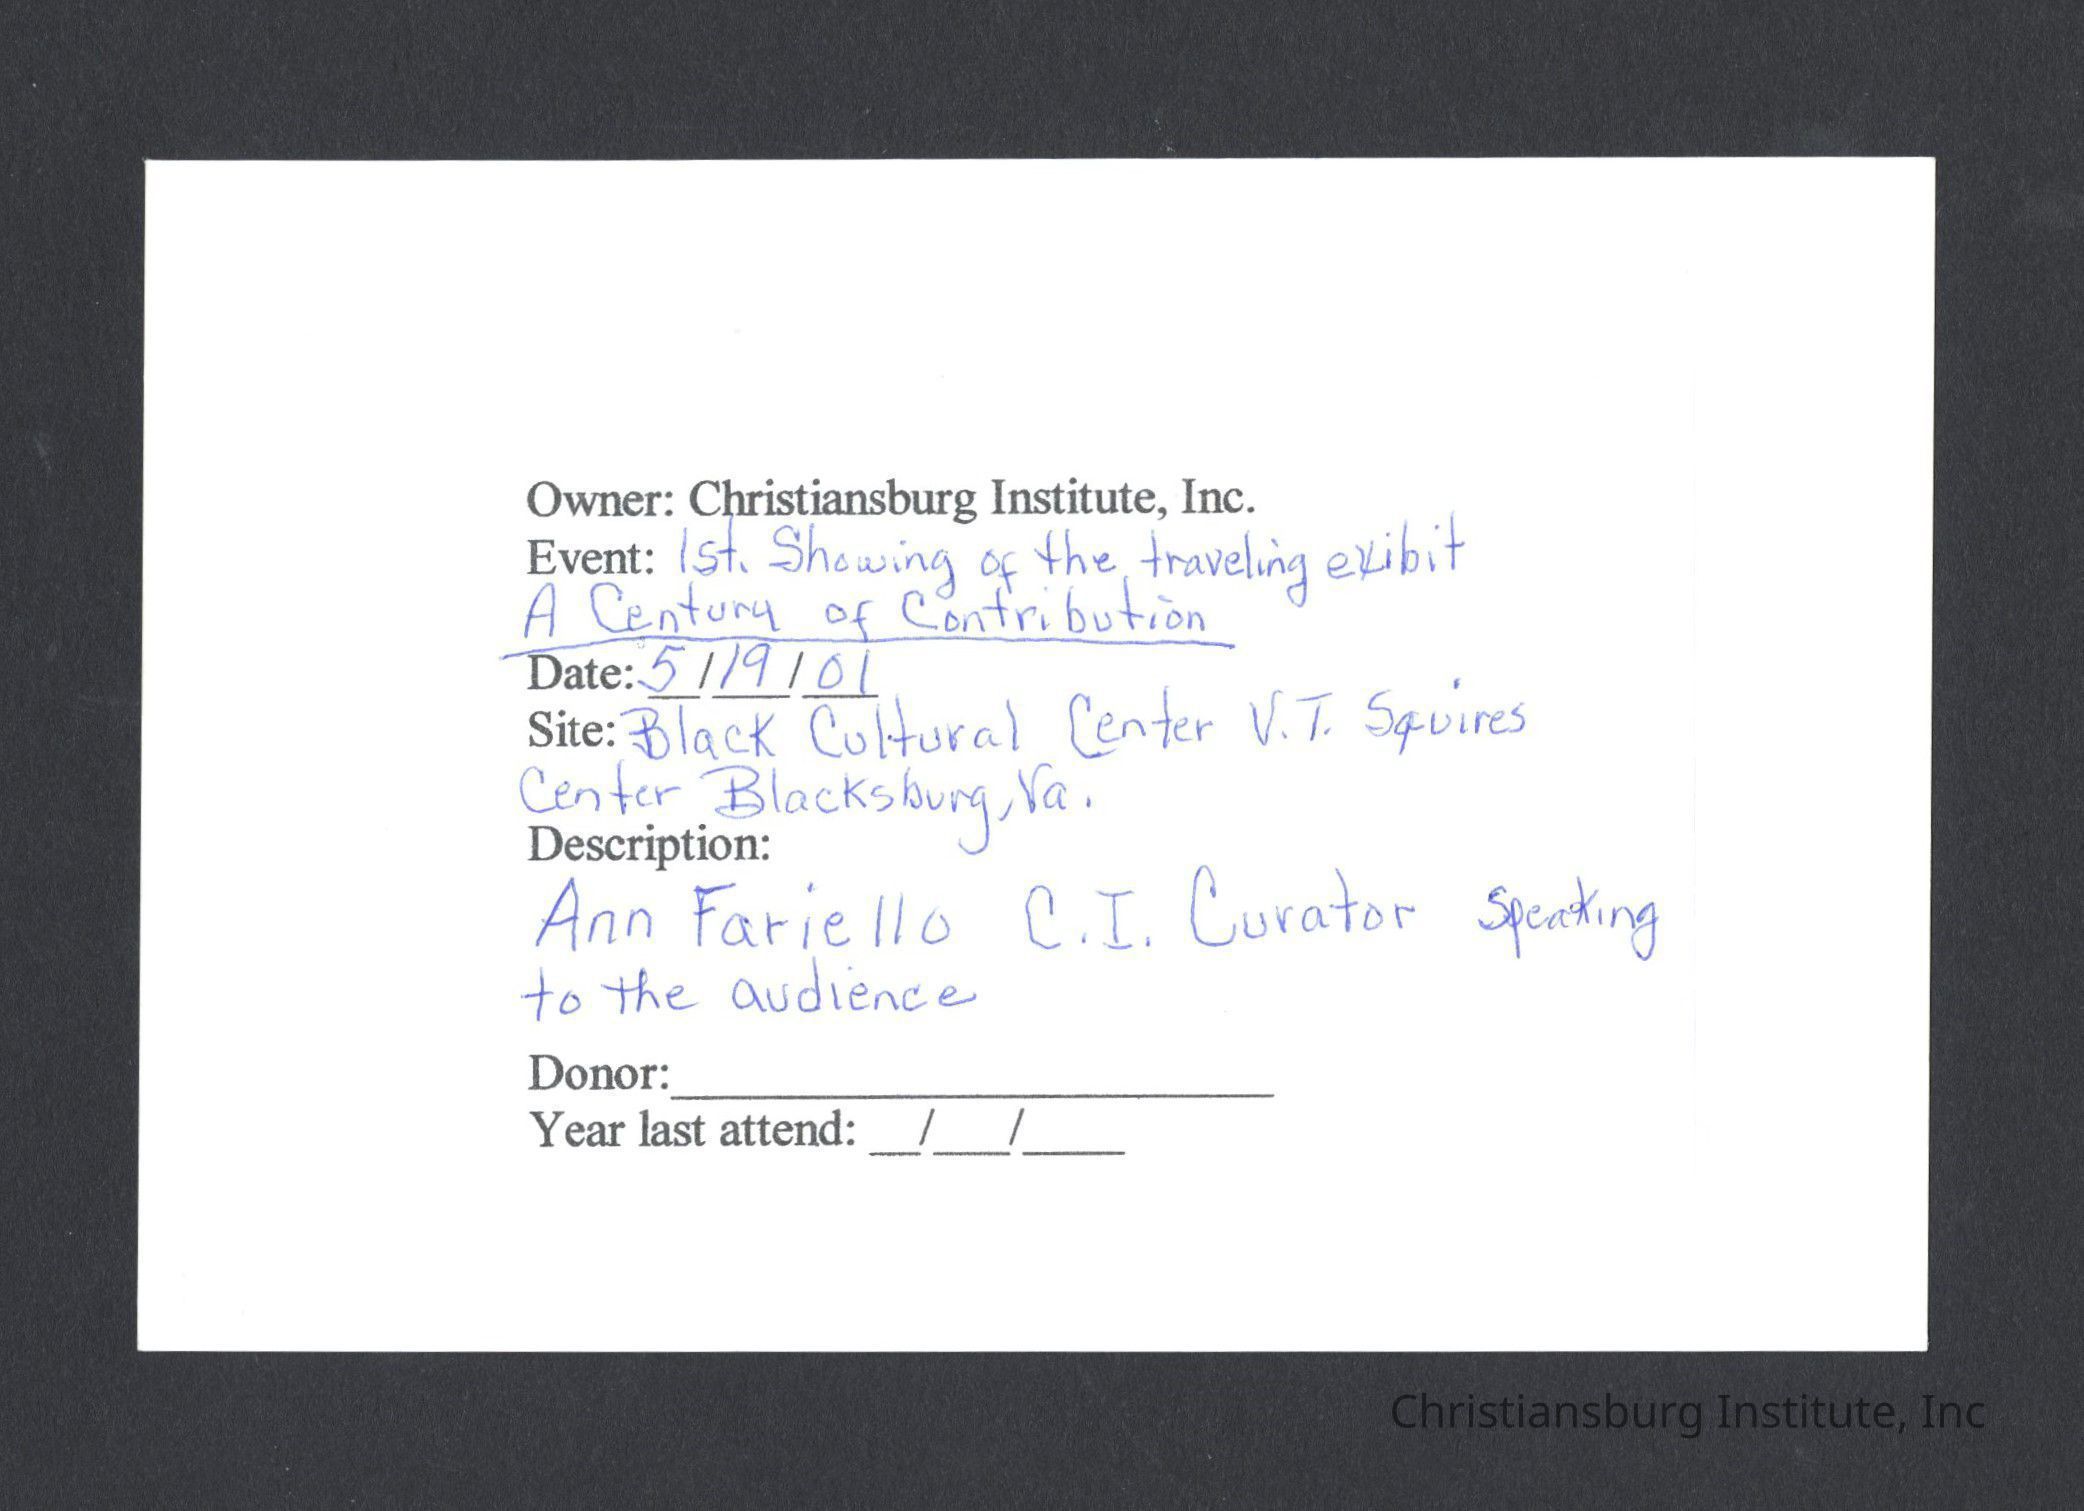 Owner: Christiansburg Institute, Inc.
Event: 1st. Showing of the traveling exibit
A Century of Contribution
Date: 5/19/01
Site: Black Cultural Center V.T. Squires
Center Blacksburg, Va.
Description:
Ann Fariello C.I. Curator Speaking
to the audience
Donor:
Year last attend: __/___/____
Christiansburg Institute, Inc